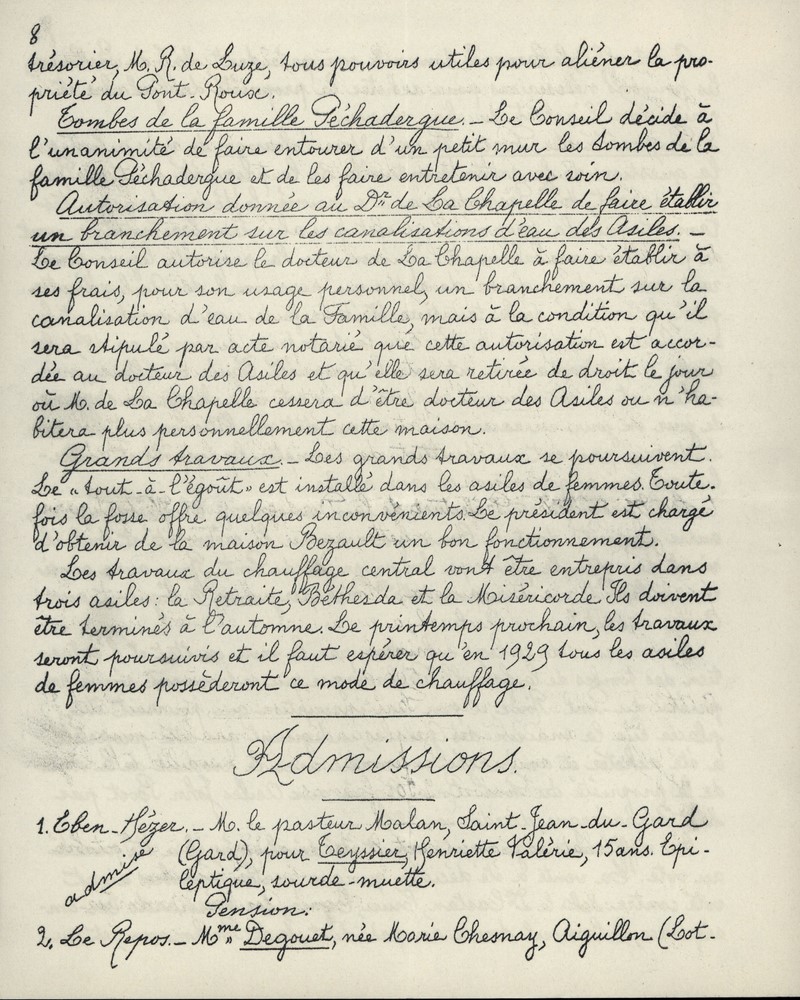 8
trésorier, M. R. de Luze, tous pouvoirs utiles pour aliéner la pro-
priété du Pont-Roux.
Tombes de la famille Péchadergue. - Le Conseil décide à
l'unanimité de faire entourer d'un petit mur les tombes de la
famille Péchadergue et de les faire entretenir avec soin.
Autorisation donnée au Dr de La Chapelle de faire établir
un branchement sur les canalisations d'eau des Asiles. -
Le Conseil autorise le docteur de La Chapelle à faire établir à
ses frais, pour son usage personnel, un branchement sur la
canalisation d'eau de la Famille, mais à la condition qu'il
sera stipulé par acte notarié que cette autorisation est accor-
dée au docteur des Asiles et qu'elle sera retirée de droit le jour
où M. de La Chapelle cessera d'être docteur des Asiles ou n'ha-
bitera plus personnellement cette maison.
Grands travaux. - Les grands travaux se poursuivent.
Le "tout-à-l'égoût" est installé dans les asiles de femmes. Toute-
fois la fosse offre quelques inconvénients. Le président est chargé
d'obtenir de la maison Bezault un bon fonctionnement.
Les travaux du chauffage central vont être entrepris dans
trois asiles : la Retraite, Béthesda et la Miséricorde. Ils doivent
être terminés à l'automne. Le printemps prochain, les travaux
seront poursuivis et il faut espérer qu'en 1929 tous les asiles
de femmes possèderont ce mode de chauffage.
Admissions.
1. Eben-Hézer. - M. le pasteur Malan, Saint-Jean-du-Gard
(Gard), pour Teyssier, Henriette Valérie, 15 ans. Epi-
admise
leptique, sourde-muette.
Pension:
2. Le Repos. - Mme Degouet, née Marie Chesnay, Aiguillon (Lot-